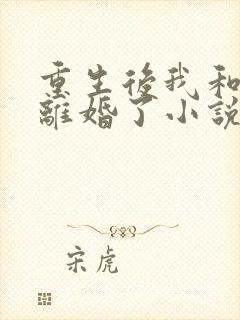 重生後我和
離婚了小說
宋虎